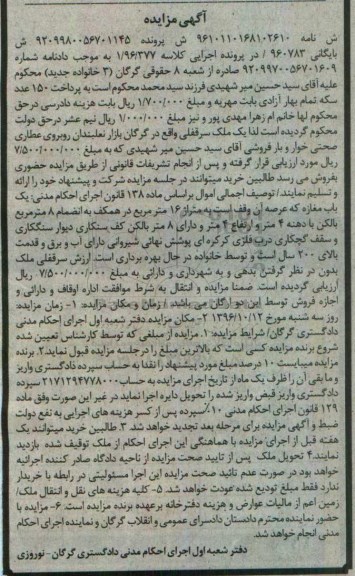 آگهی مزایده
ش نامه ۹۶۱۰۱۱۰۱۶۸۱۰۲۶۱۰ ش پرونده ۹۲۰۹۹۸۰۰۵۶۷۰۱۱۴۵ ش
بایگانی ۹۶۰۷۸۳ / در پرونده اجرایی کلاسه ۱/۹۶/۳۷۷ به موجب دادنامه شماره
۹۲۰۹۹۷۰۰۵۶۷۰۱۶۰۹ صادره از شعبه ۸ حقوقی گرگان (۳ خانواده جدید) محکوم
علیه آقای سید حسین میر شهیدی فرزند سید محمد محکوم است به پرداخت ۱۵۰ عدد
سکه تمام بهار آزادی بابت مهریه و مبلغ ۱/۷۰۰/۰۰۰ ریال بابت هزینه دادرسی در حق
محکوم لها خانم ام زهرا مهدی پور و نیز مبلغ ۱/۰۰۰/۰۰۰ ریال نیم عشر در حق دولت
محکوم گردیده است لذا یک ملک سرقفلی واقع در گرگان بازار نعلبندان روبروی عطاری
صحتی خوار و بار فروشی آقای سید حسین میر شهیدی که به مبلغ ۷/۵۰۰/۰۰۰/۰۰۰
ریال مورد ارزیابی قرار گرفته و پس از انجام تشریفات قانونی از طریق مزایده حضوری
بفروش می رسد طالبین خرید میتوانند در جلسه مزایده شرکت و پیشنهاد خود را ارائه
و تسلیم نمایند./ توصیف اجمالی اموال براساس ماده ۱۳۸ قانون اجرای احکام مدنی: یک
باب مغازه که عرصه آن وقف است به متراژ ۱۶ متر مربع در همکف به انضمام ۸ مترمربع
بالکن با دهنه ۴ متر و ارتفاع ۴ متر و دارای ۸ متر بالکن کف سنکاری دیوار سنگکاری
و سقف گچکاری درب فلزی کرکره ای پوشش نهائی شیروانی دارای آب و برق و قدمت
بالای ۲۰۰ سال است و توسط خانواده در حال بهره برداری است. ارزش سرقفلی ملک
بدون در نظر گرفتن بدهی و به شهرداری و دارائی به مبلغ ۷/۵۰۰/۰۰۰/۰۰۰ ریال
ارزیابی گردیده است. ضمنا مزایده و انتقال به شرط موافقت اداره اوقاف و دارائی و
اجازه فروش توسط این دو ارگان می باشد / زمان و مکان مزایده: ۱- زمان مزایده:
روز سه شنبه مورخ ۱۳۹۶/۱۰/۱۲ ۲- مکان مزایده دفتر شعبه اول اجرای احکام مدنی
دادگستری گرگان/ شرایط مزایده: ۱. مزایده از مبلغی که توسط کارشناس تعیین شده
شروع برنده مزایده کسی است که بالاترین مبلغ را در جلسه مزایده قبول نماید ۲. برنده
مزایده میبایست ۱۰ درصد مبلغ مورد پیشنهاد را نقدا به حساب سپرده دادگستری واریز
و ما بقی آن را ظرف یک ماه از تاریخ اجرای مزایده به حساب ۲۱۷۱۲۹۴۷۷۸۰۰۰ سپرده
دادگستری واریز قبض واریز شده را تحویل دایره اجرا نماید در غیر این صورت وفق ماده
۱۲۹ قانون اجرای احکام مدنی ۱۰٪ سپرده پس از کسر هزینه های اجرایی به نفع دولت
ضبط و آگهی مزایده برای مرحله بعد تجدید خواهد شد. ۳. طالبین خرید میتوانند یک
هفته قبل از اجرای مزایده با هماهنگی این اجرای احکام از ملک توقیف شده بازدید
نمایند. ۴. تحویل ملک پس از تایید صحت مزایده از ناحیه دادگاه صادر کننده اجرائیه
خواهد بود در صورت عدم تائید صحت مزایده این اجرا مسئولیتی در رابطه با خریدار
ندارد فقط مبلغ تودیع شده عودت خواهد شد. ۵- کلیه هزینه های نقل و انتقال ملک/
زمین اعم از مالیات عوارض و هزینه دفترخانه برعهده برنده مزایده است. ۶- مزایده با
حضور نماینده محترم دادستان دادسرای عمومی و انقلاب گرگان و نماینده اجرای احکام
مدنی انجام خواهد شد.
دفتر شعبه اول اجرای احکام مدنی دادگستری گرگان - نوروزی